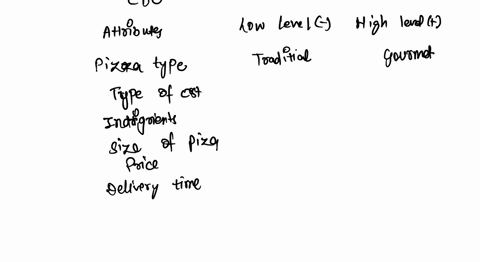 Attributes Low level (-) High level (+)
Pizza type Traditial Gourmet
Type of cst
Indigrients
Size of piza
Price
Delivery time